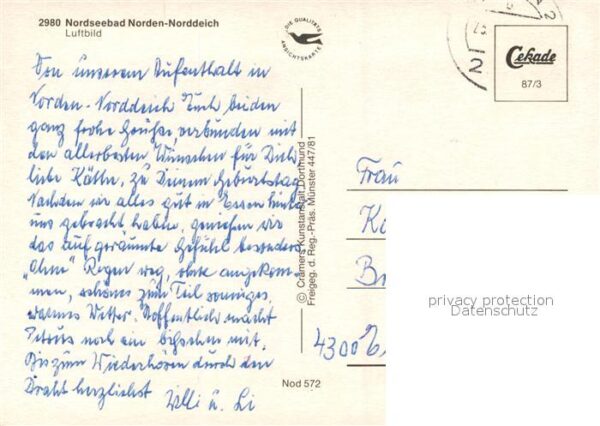 2980 Nordseebad Norden-Norddeich
Luftbild
DIE QUALITÄTS
ANSICHTSKARTE
2
Cekade
87/3
Von unserem Aufenthalt in
Norden-Norddeich Euch beiden
ganz frohe Grüße, verbunden mit
den allerbesten Wünschen für Dich
liebe Käthe, zu Deinem Geburtstag.
Nachdem wir alles gut in Essen hinter
uns gebracht haben, genießen wir
das Gefühl besonders
"Ohne" Regen weg, ohne angekom-
men, schönes zum Teil sonniges,
warmes Wetter. Hoffentlich macht
Petrus noch ein bißchen mit.
Bis zum Wiederhören durch den
Draht herzlichst
Willi u. Li
© Cramers Kunstanstalt, Dortmund
Freigeg. d. Reg.-Präs. Münster 447/81
Nod 572
Frau
4300
privacy protection
Datenschutz